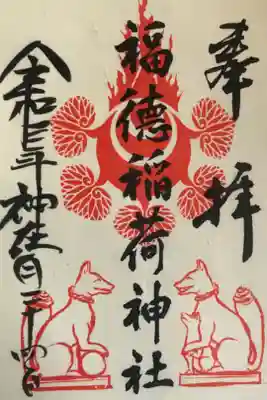 奉拝
福徳稲荷神社
令和三年神在月二十四日